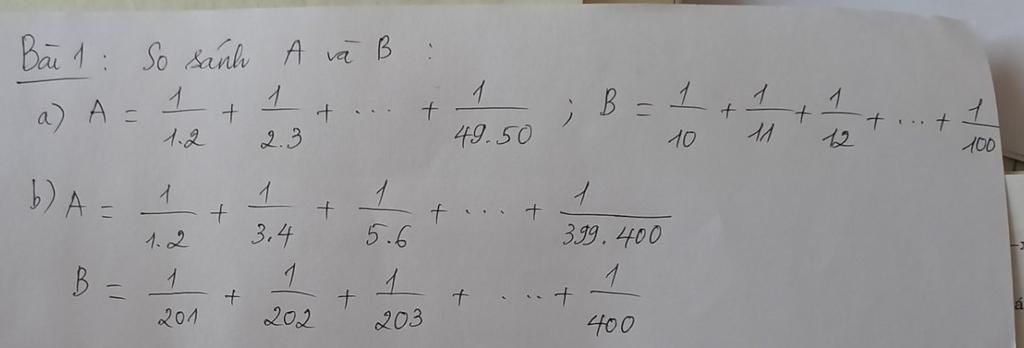 Bài 1 : So sánh A và B :
a) A = 1/1.2 + 1/2.3 + ... + 1/49.50 ; B = 1/10 + 1/11 + 1/12 + ... + 1/100
b) A = 1/1.2 + 1/3.4 + 1/5.6 + ... + 1/399.400
B = 1/201 + 1/202 + 1/203 + ... + 1/400